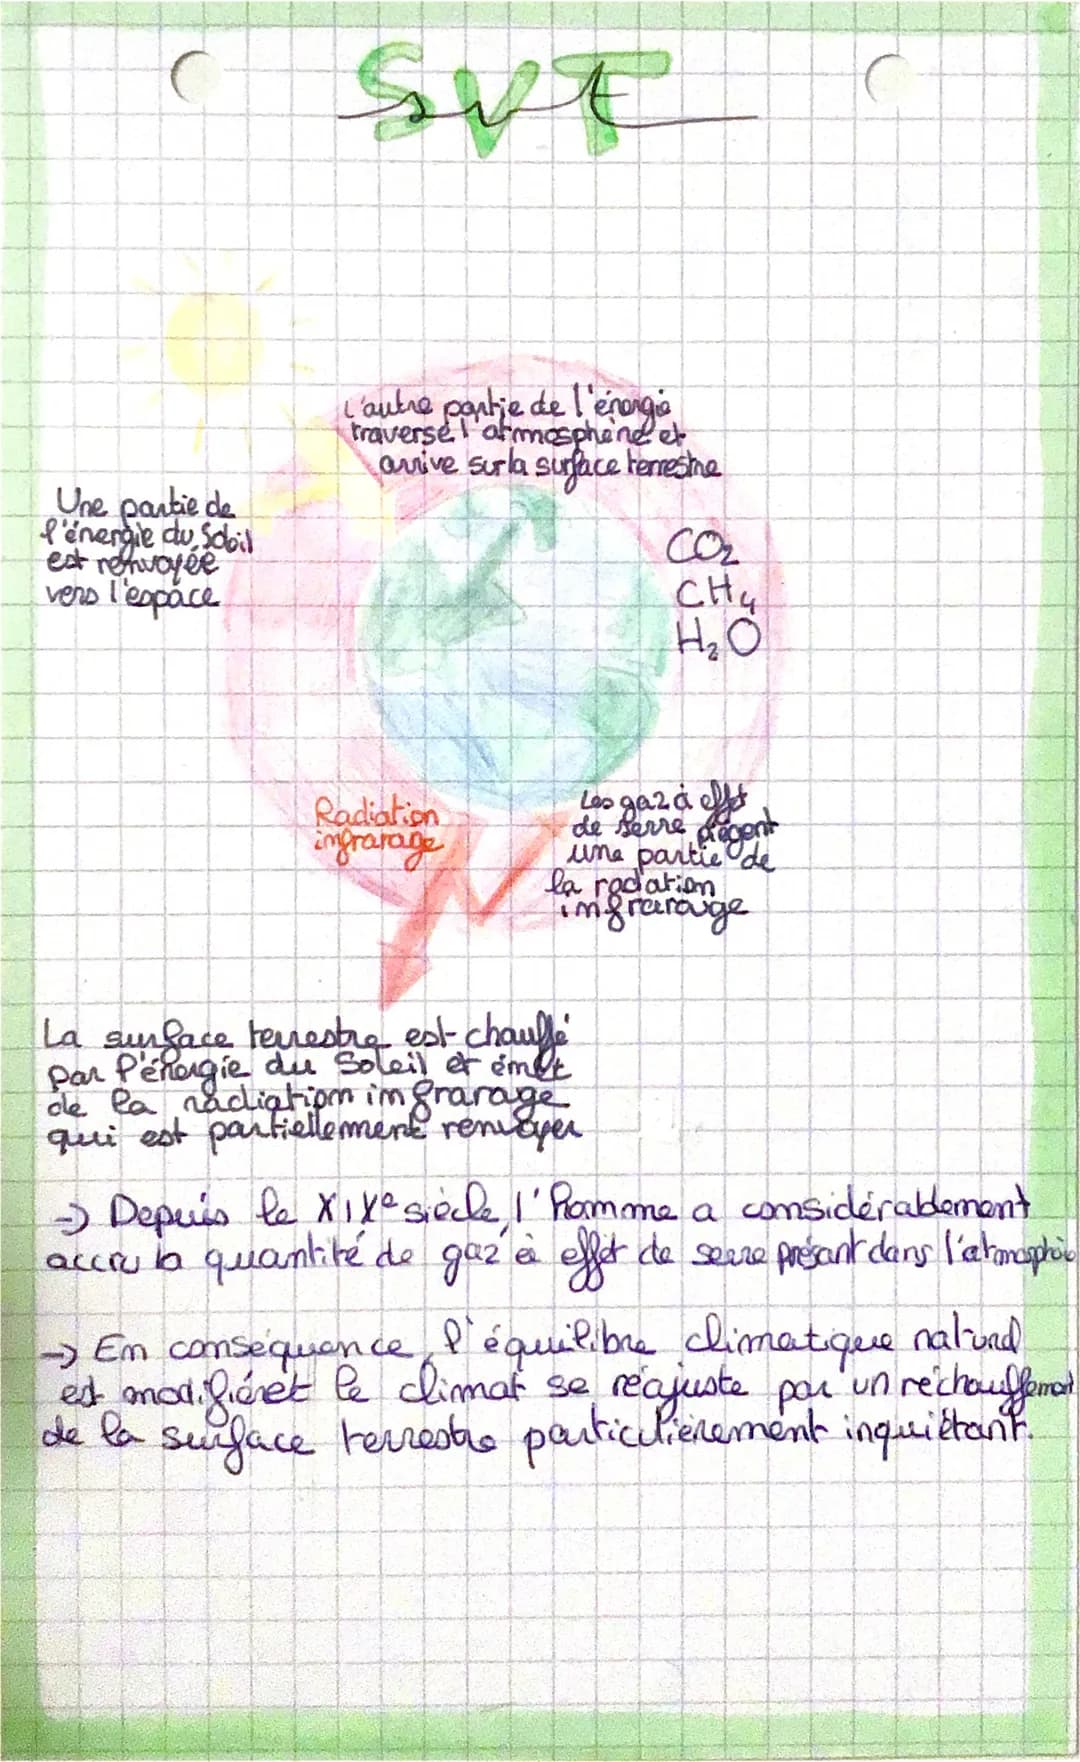 SVT
svt
L'autre partie de l'énergie
traverse l'atmosphère et
arrive sur la surface terrestre
Une partie de
l'énergie du Soleil
est renvoyée
vers l'espace
CO₂
CH₄
H₂O
Radiation
infrarage
Les gaz à effet
de serre piègent
une partie de
la radiation
infrarouge
La surface terrestre est chauffé
par l'énergie du Soleil et émet
de la radiation infrarage
qui est partiellement renvoyer
-> Depuis le XIXe siècle, l'Homme a considérablement
accru la quantité de gaz à effet de serre présant dans l'atmosphère
-> En conséquance, l'équilibre climatique naturel
est modifiéret le climat se réajuste par un réchauffement
de la surface terrestre particulièrement inquiétant.